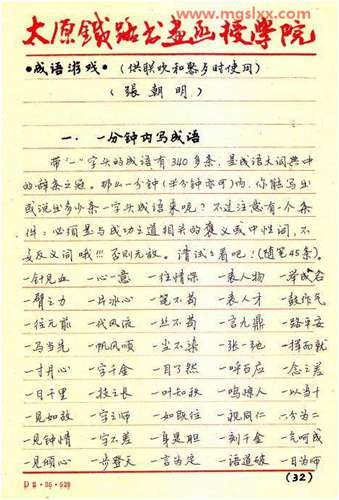 www.mgslxx.com
太原鐵路书画函授学院
•成语游戏•（供联欢和聚多时使用）
（張朝明）
一、一分钟内写成语
带“一”字头的成语有340多条，是成语大词典中
的辞条之冠。那么一分钟（半分钟亦可）内，你能写出
或说出多少条一字头成语来呢？不过注意有个条
件：必须是与成功之道相关的褒义或中性词，不
要反义词哦!!! 否则无效。请试之看吧！（随笔45条）。
一针见血 一心一意 一往情深 一表人物 一举成名
一臂之力 一片冰心 一笔不苟 一表人才 一鼓作气
一往无前 一代风流 一丝不苟 一言九鼎 一路平安
一马当先 一帆风顺 一尘不染 一张一弛 一挥而就
一寸丹心 一字千金 一目了然 一呼百应 一念之差
一日千里 一技之长 一叶知秋 一鸣惊人 一以当十
一见如故 一字之师 一如既往 一视同仁 一分为二
一见钟情 一字不差 一身是胆 一刻千金 一气呵成
一见倾心 一步登天 一言为定 一语道破 一日为师
（32）